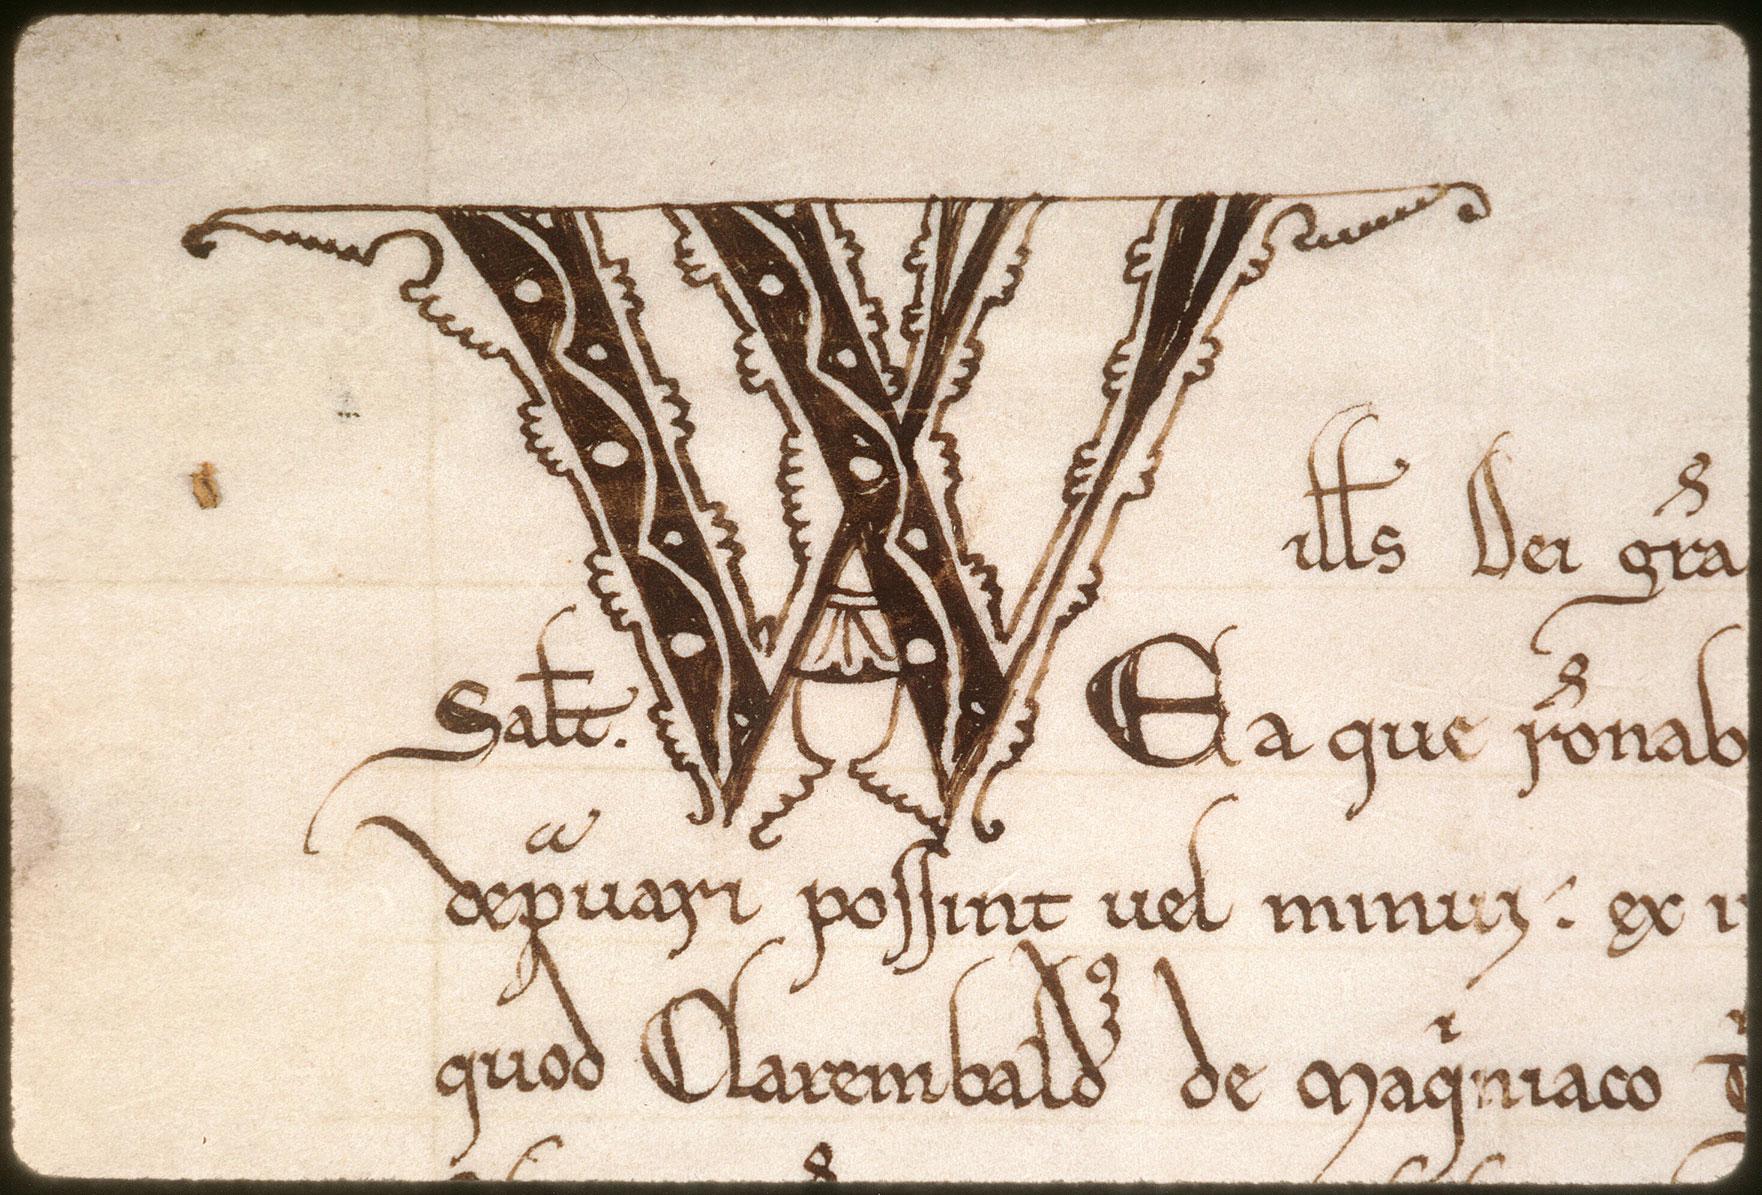 Wills Dei gra
Salt. Ea que ꝑonab
depuari possint uel minui: ex
quod Clarembald9 de Maqiniaco